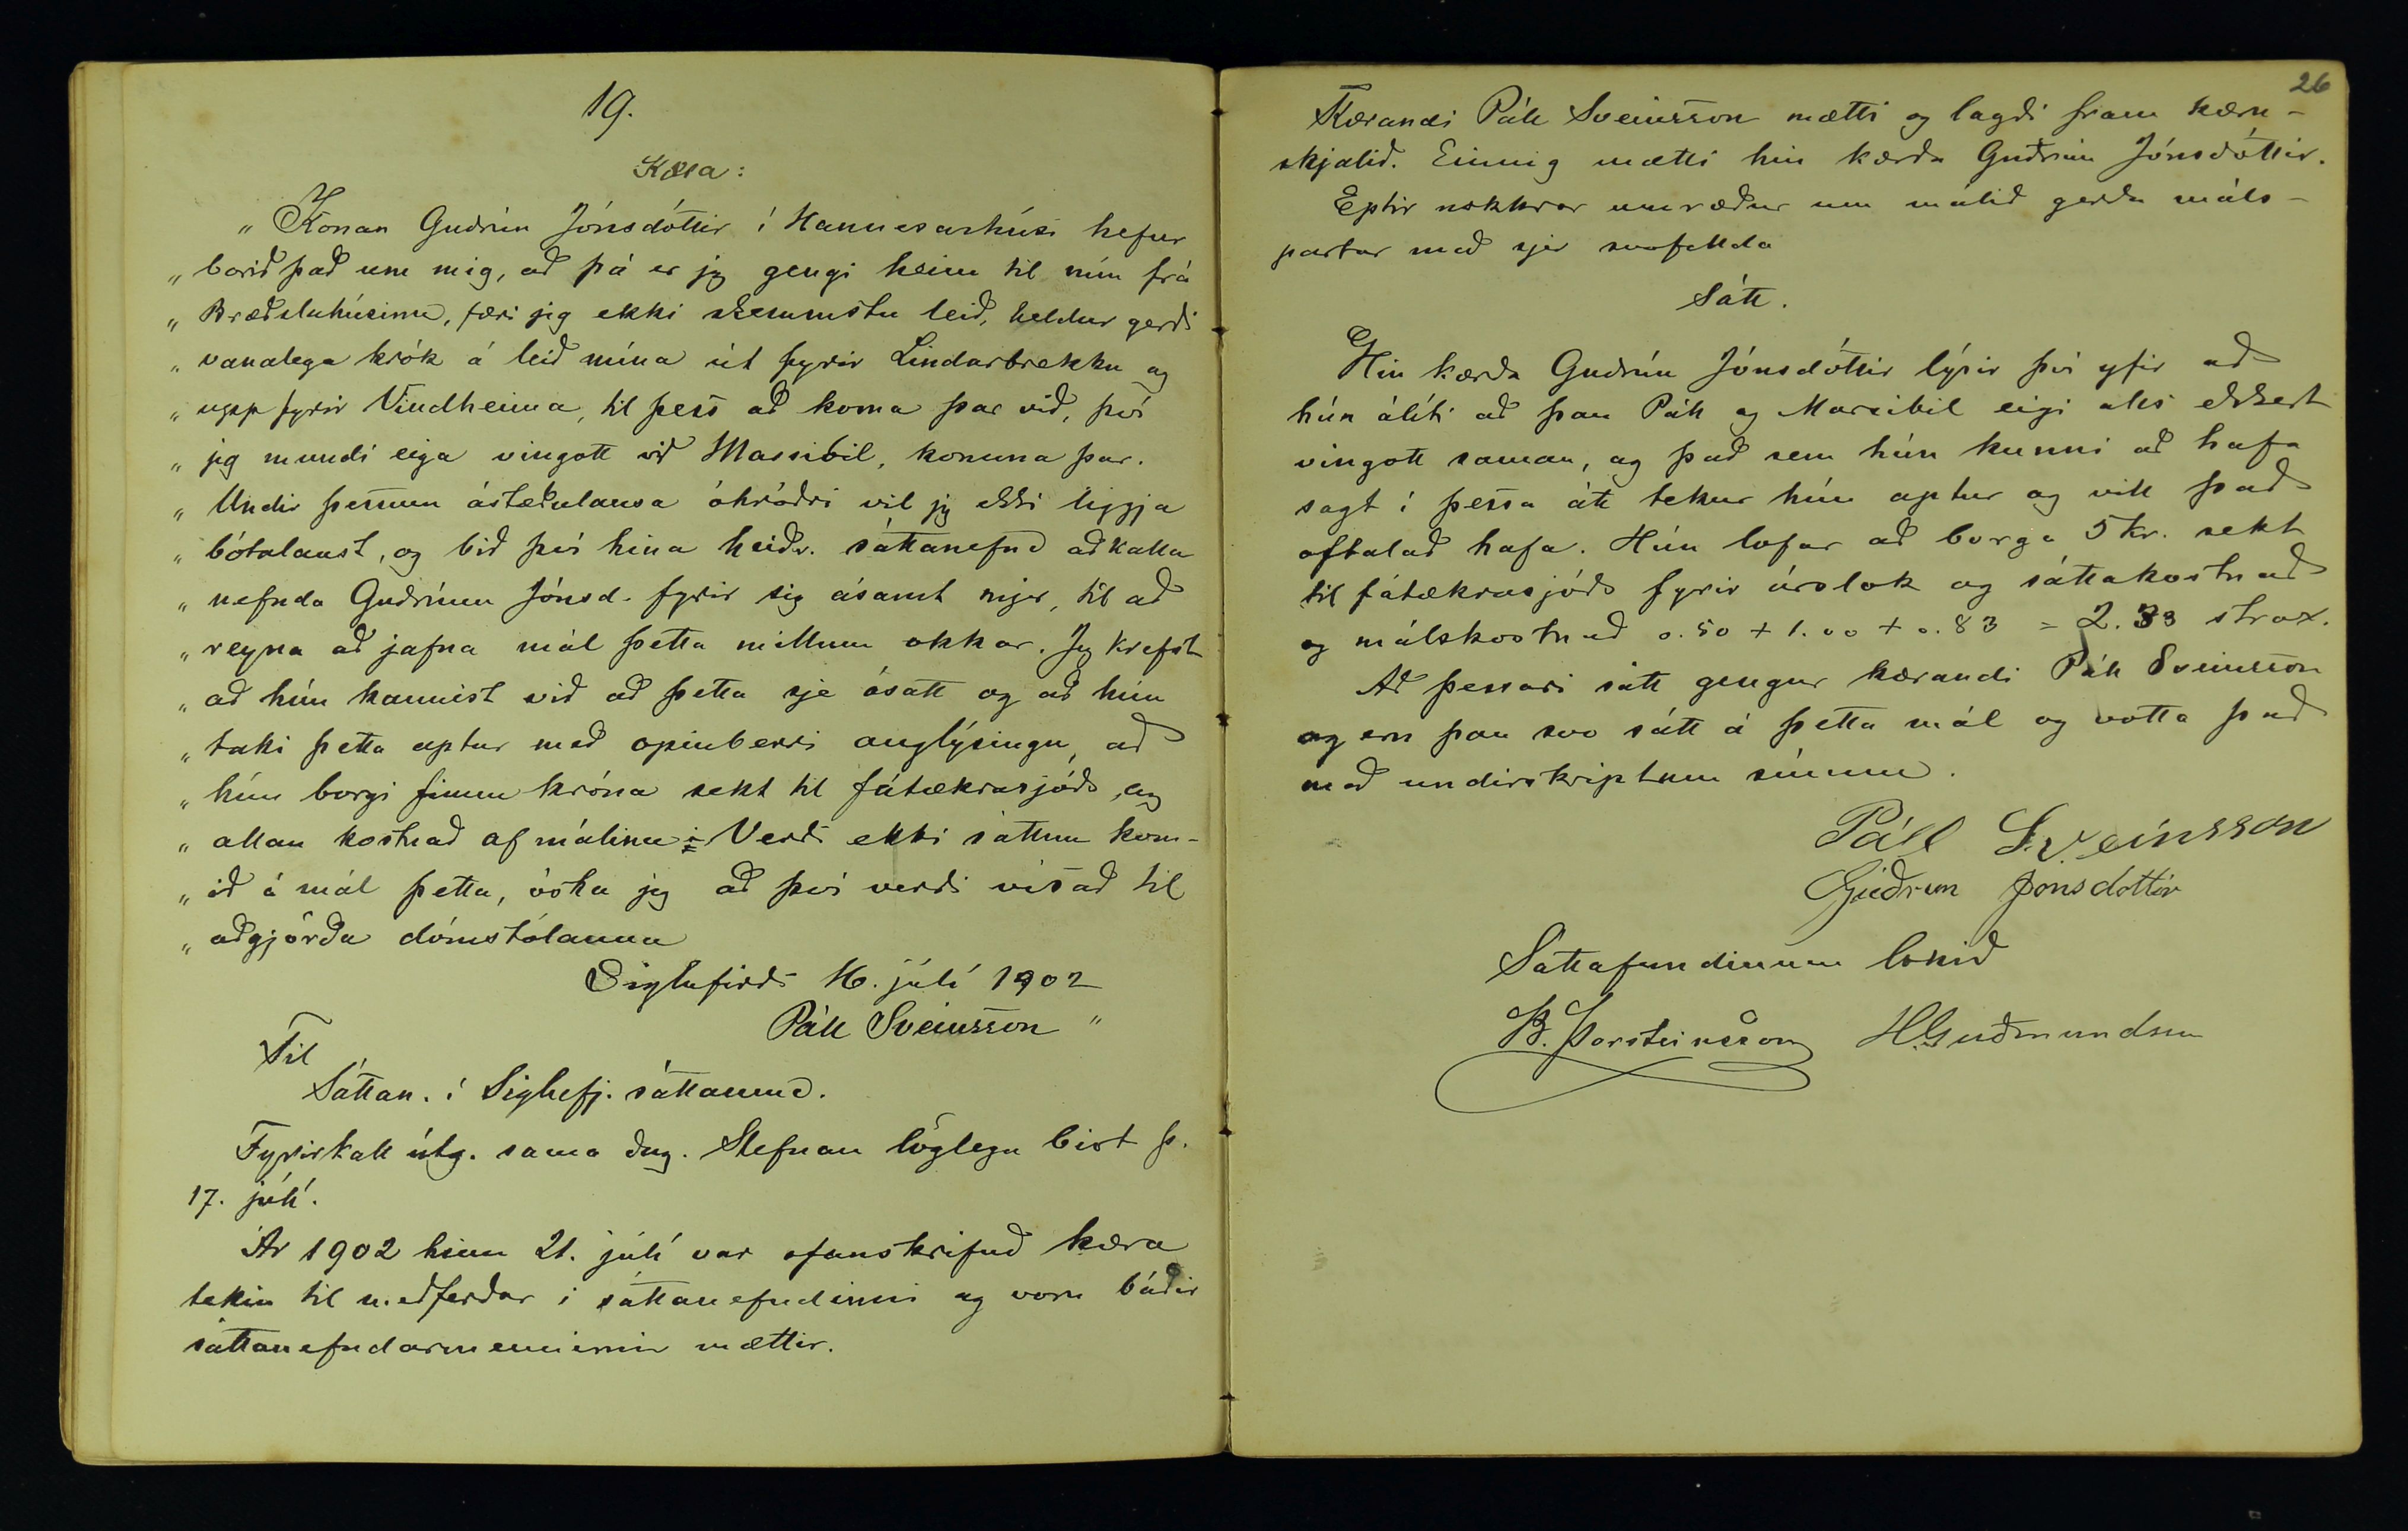 19.
Kæra:
„Konan Guðrún Jónsdóttir í Hannesarhúsi hefur
„borið það um mig, að þá er jeg gengi heim til mín frá
„Bræðsluhúsinu, færi jeg ekki skemmstu leið, heldur gerði
„vanalega krók á leið mína út fyrir Lindarbrekku og
„upp fyrir Vindheima, til þess að koma þar við, því
„jeg mundi eiga vingott við Marsibil, konuna þar.
„Undir þessum ástæðulausa óhróðri vil jeg ekki liggja
„bótalaust, og bið því hina heiðr. sáttanefnd að kalla
„nefnda Guðrúnu Jónsd. fyrir sig ásamt mjer, til að
„reyna að jafna mál þetta millum okkar. Jeg krefst
„að hún kannist við að þetta sje ósatt og að hún
„taki þetta aptur með opinberri auglýsingu, að
„hún borgi fimm króna sekt til fátækrasjóðs, og
„allan kostnað af málinu. Verði ekki sáttum kom-
„ið á mál þetta, óska jeg að því verði vísað til
„aðgjörða dómstólanna
Siglufirði 16. júlí 1902
Páll Sveinsson"
Til
Sáttan. í Siglufj. sáttaumd.
Fyrirkall útg. sama dag. Stefnan löglega birt þ.
17. júlí.
Ár 1902 hinn 21. júlí var ofanskrifuð kæra
tekin til meðferðar í sáttanefndinni og voru báðir
sáttanefndarmennirnir mættir.
26
Kærandi Páll Sveinsson mætti og lagði fram kæru-
skjalið. Einnig mætti hin kærða Guðrún Jónsdóttir.
Eptir nokkrar umræður um málið gerðu máls-
partar með sjer svofellda
Sátt.
Hin kærða Guðrún Jónsdóttir lýsir því yfir að
hún álíti að þau Páll og Marsibil eigi alls ekkert
vingott saman, og það sem hún kunni að hafa
sagt í þessa átt tekur hún aptur og vill það
oftalað hafa. Hún lofar að borga 5 kr. sekt
til fátækrasjóðs fyrir árslok og sáttakostnað
og málskostnað 0.50 + 1.00 + 0.83 = 2.33 strax.
Að þessari sátt gengur kærandi Páll Sveinsson
og eru þau svo sátt á þetta mál og votta það
með undirskriptum sínum.
Páll Sveinsson
Guðrun Jonsdottir
Sáttafundinum lokið
B. Þorsteinsson HGuðmundsson